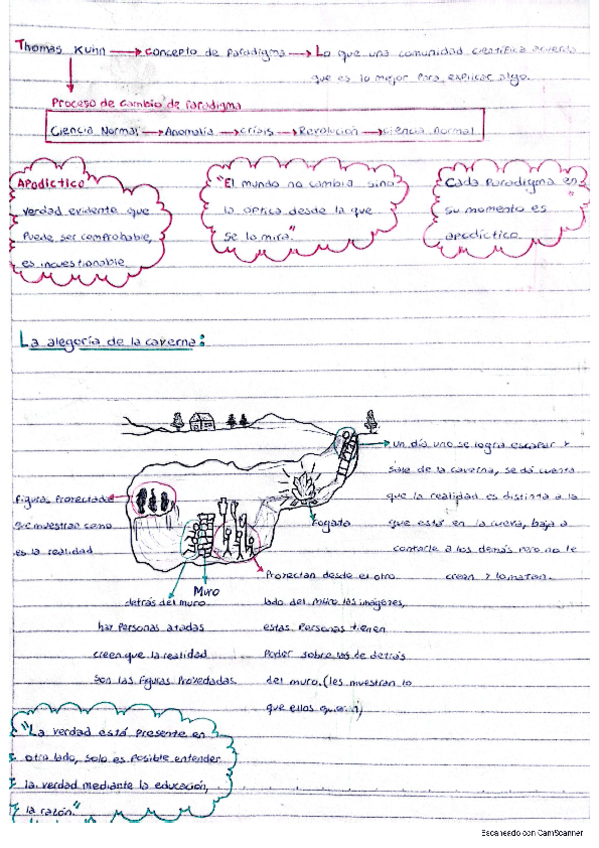 Thomas Kuhn → concepto de Paradigma → Lo que una comunidad científica acuerda
que es lo mejor Para explicar algo.
Proceso de cambio de Paradigma
Ciencia Normal → Anomalía → crisis → Revolución → ciencia normal
Apodíctico
verdad evidente que
Puede ser comprobable,
es incuestionable.
"El mundo no cambia sino
la optica desde la que
se lo mira."
Cada Paradigma en
su momento es
apodíctico.
La alegoría de la caverna:
un día uno se logra escapar y
sale de la caverna, se dá cuenta
que la realidad es distinta a la
que está en la cueva, baja a
contarle a los demás pero no le
creen y lo matan.
Figuras Proyectadas
que muestran como
es la realidad
Fogata
Muro
detrás del muro
hay Personas atadas
creen que la realidad
son las figuras Proyectadas.
Proyectan desde el otro
lado del muro las imágenes,
estas Personas tienen
Poder sobre las de detrás
del muro. (les muestran lo
que ellos quieren)
"La verdad está Presente en
otro lado, solo es Posible entender
la verdad mediante la educación,
la razón."
Escaneado con CamScanner